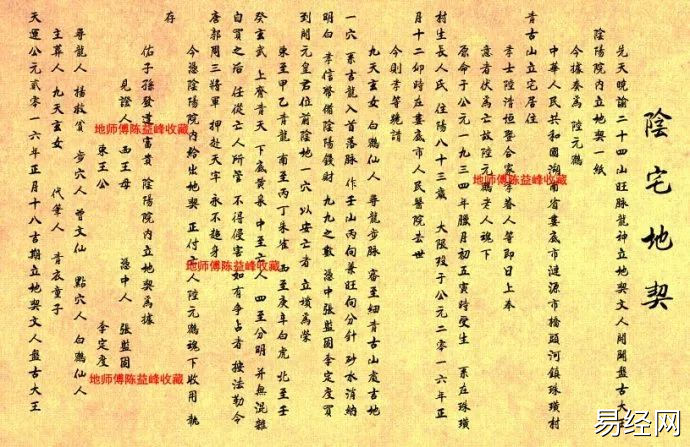 陰宅地契
兄天曉諭二十四山旺脉龍神立地契文人開闢盘古大王
陰陽院內立地契一紙
今據奏為 陸元鵝
中華人民共和國湖南省婁底市漣源市橋頭河鎮珠璜村
青古山立宅居住
孝士陸清恒暨合家孝眷人等即日上奉
意者伏為亡故陸元鵝老人魂下
原命于公元一九三四年臘月初五寅時受生 系在珠璜
村生長人氏 住陽八十三歲 大限歿于公元二零一六年正
月十二卯時在婁底市人民醫院去世
今則孝等統請
九天玄女 白鶴仙人 尋龍步脉 審至細青古山處吉地
一穴 系古龍入首落脉 作壬山丙向兼旺向分針 砂水消納
明白 孝信虔備陰陽錢財 九九之數 憑中張堅固李定度買
到開元皇君位前陰地一穴 以安亡者 立墳為塋
東至甲乙青龍 南至丙丁朱雀 西至庚辛白虎 北至壬
癸玄武 上齊青天 下底黃泉 中至亡人 四至分明 并無混雜
自買之后 任從亡人所管 不得侵害 如有爭占者 按法勒令
唐郭周三將軍 押赴天牢 永不超身
今憑陰陽院內給出地契 正付亡人陸元鵝魂下收用 執
存
佑子孫發達富貴 陰陽院內立地契為據
見證人 西王母 憑中人 張堅固
東王公 李定度
尋龍人 楊救貧 步穴人 曾文仙 點穴人 白鶴仙人
主葬人 九天玄女 代筆人 青衣童子
天運公元貳零一六年正月十八吉期立地契文人盤古大王
地师傅陈益峰收藏
地师傅陈益峰收藏
地师傅陈益峰收藏
地师傅陈益峰收藏
易经网